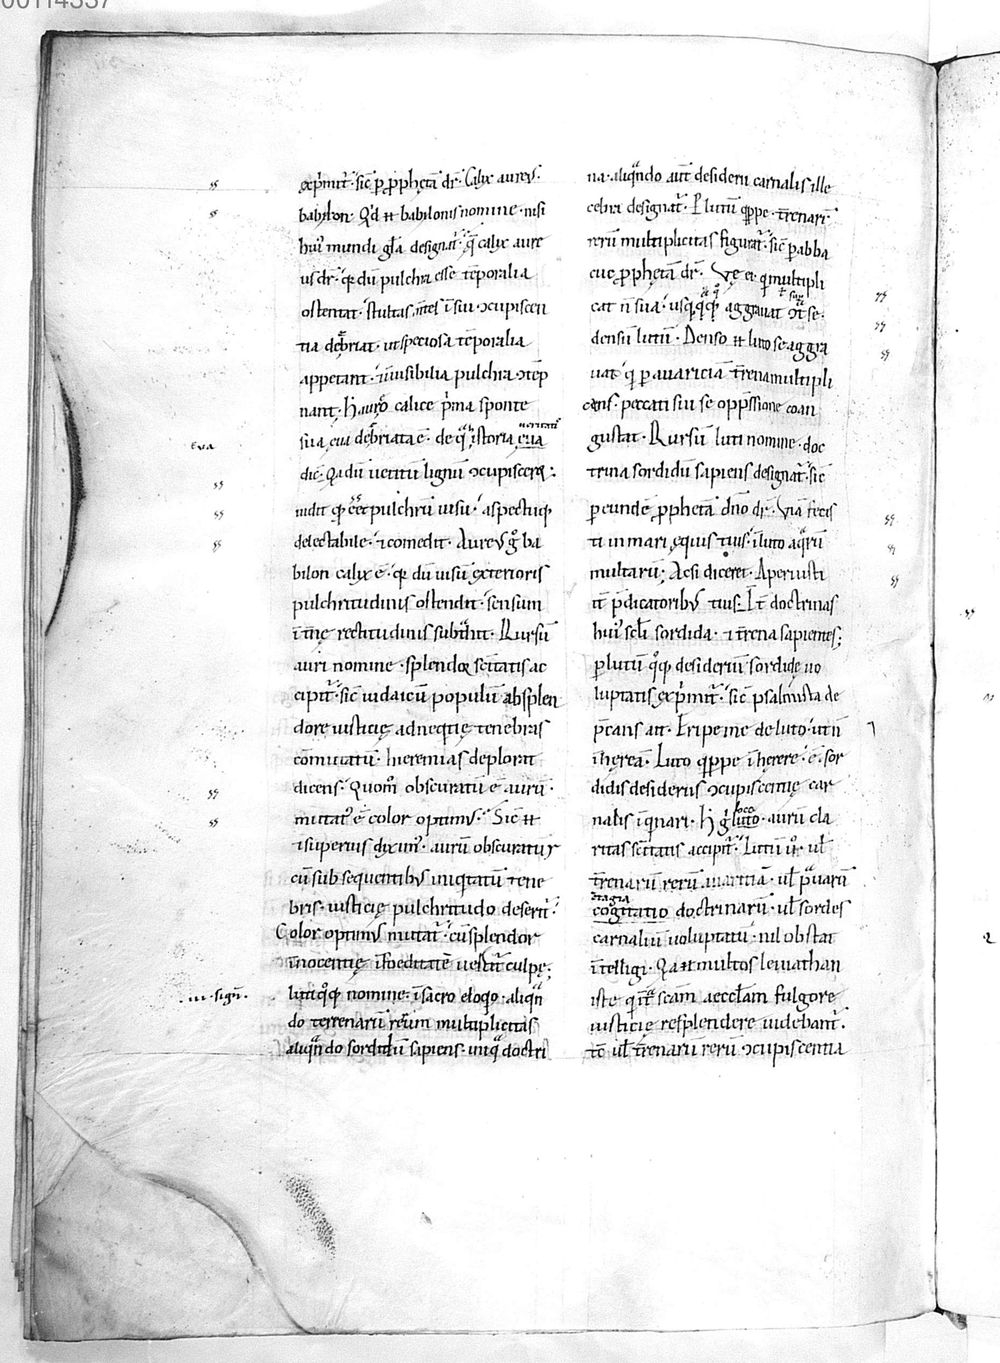 00114337
exp̄mit᷒· sic̄ ꝑ ꝓphetā dr̄· Calix aureus·
babilon· Qd̄ n̄ babilonis nomine· nisi
hui᷒ mundi gl̄a designat᷒· q̄ calix aure
us dr̄· qꝫ dū pulchra esse tēporalia
ostentat· stultas m̄tes ī sui ꝯcupiscen
tia debriat· ut speciosa tēporalia
appetant· inuisibilia pulchra ꝯtēp
nant· h̄ aureo calice p̄ma sponte
ueritati
sua eua debriata ē· de q̄ istoria eua
Eva
dic̄· Qa dū uetitū lignū ꝯcupisceret·
uidit qꝫ eēt pulchrū uisu· aspectuqꝫ
delectabile· ⁊ comedit· Aureus g̊ ba
bilon calyx ē· qꝫ dū uisū exterioris
pulchritudinis ostendit· sensum
īt̄ne rectitudinis subt̄hit· Rursū
auri nomine· splendor sc̄itatis ac
cipit᷒· sic̄ iudaicū populū absplen
dore iusticię ad neqtię tenebras
cōmutatū· hieremias deplorat
dicens· Quom̊ obscuratū ē aurū·
mutat᷒ ē color optimus· Sic̄ n̄
⁊ superius dixim᷒· aurū obscuratur
cū subsequentibus iniqtatū tene
bris· iusticię pulchritudo deserit᷒·
Color optimus mutat᷒· cū splendor
īnocentię ī foeditatē uertit᷒ culpę·
.iii. sign̄.
luti qꝫ nomine· ī sacro eloqo· aliqn̄
do terrenarū rerum multiplicitas
aliqn̄do sordidū sapiens· iniq doctri
na· aliqn̄do aut̄ desiderii carnalis ille
cebra designat᷒· P lutū qppe· t̄renarū
rerū multiplicitas figurat᷒· sic̄ ꝑ abba
cuc ꝓphetā dr̄· Vę ei qui multipli
cat n̄ sua· usqqꝫ aggrauat ꝯt̄ se·
densū lutū· Denso n̄ luto se aggra
uat· q ꝑ auariciā t̄rena multipli
cans· peccati sui se opp̄ssione coan
gustat· Rursū luti nomine· doc
trina sordidū sapiens designat᷒· sic̄
ꝑ eunde ꝓphetā dn̄o dr̄· Viā fecis
ti in mari equis tuis· ī luto aqrū
multarū· Ac si diceret· Aperuisti
it̄ p̄dicatoribus tuis· Int̄ doctrinas
hui᷒ scl̄i sordida· ⁊ t̄rena sapientes·
ꝑ lutū qꝫ desideriū sordidę uo
luptatis exp̄mit᷒· sic̄ psalmista de
p̄cans ait· Eripe me de luto· ut n̄
īherea· Luto qppe īherere· ē· sor
didis desideriis ꝯcupiscentię car
nalis īqnari· h̄ g̊ luto· aurū cla
loco
ritas sc̄itatis accipit᷒· Lutū ů· ul̄
t̄renarū rerū auaritia· ul̄ p̄uarū
ꝯtagia
cogitatio doctrinarū· ul̄ sordes
carnaliū uoluptatū· nil obstat
ītelligi· Qa n̄ multos leuiathan
iste q īt̄ scām aeccl̄am fulgore
iusticię resplendere uidebant᷒·
to ul̄ t̄renarū rerū ꝯcupiscentia